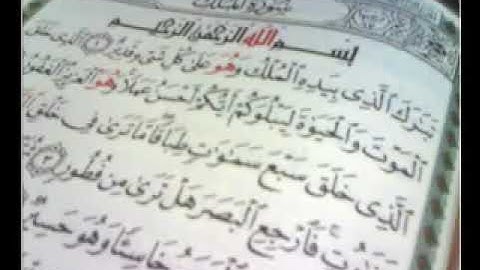 سورة الملك
بسم الله الرحمن الرحيم
تبرك الذى بيده الملك وهو على كل شىء قدير ١ الذى خلق
الموت والحيوة ليبلوكم ايكم احسن عملا وهو العزيز الغفور
الذى خلق سبع سموت طباقا ما ترى فى خلق
فارجع البصر هل ترى من فطور ٣
خاسئا وهو حسير